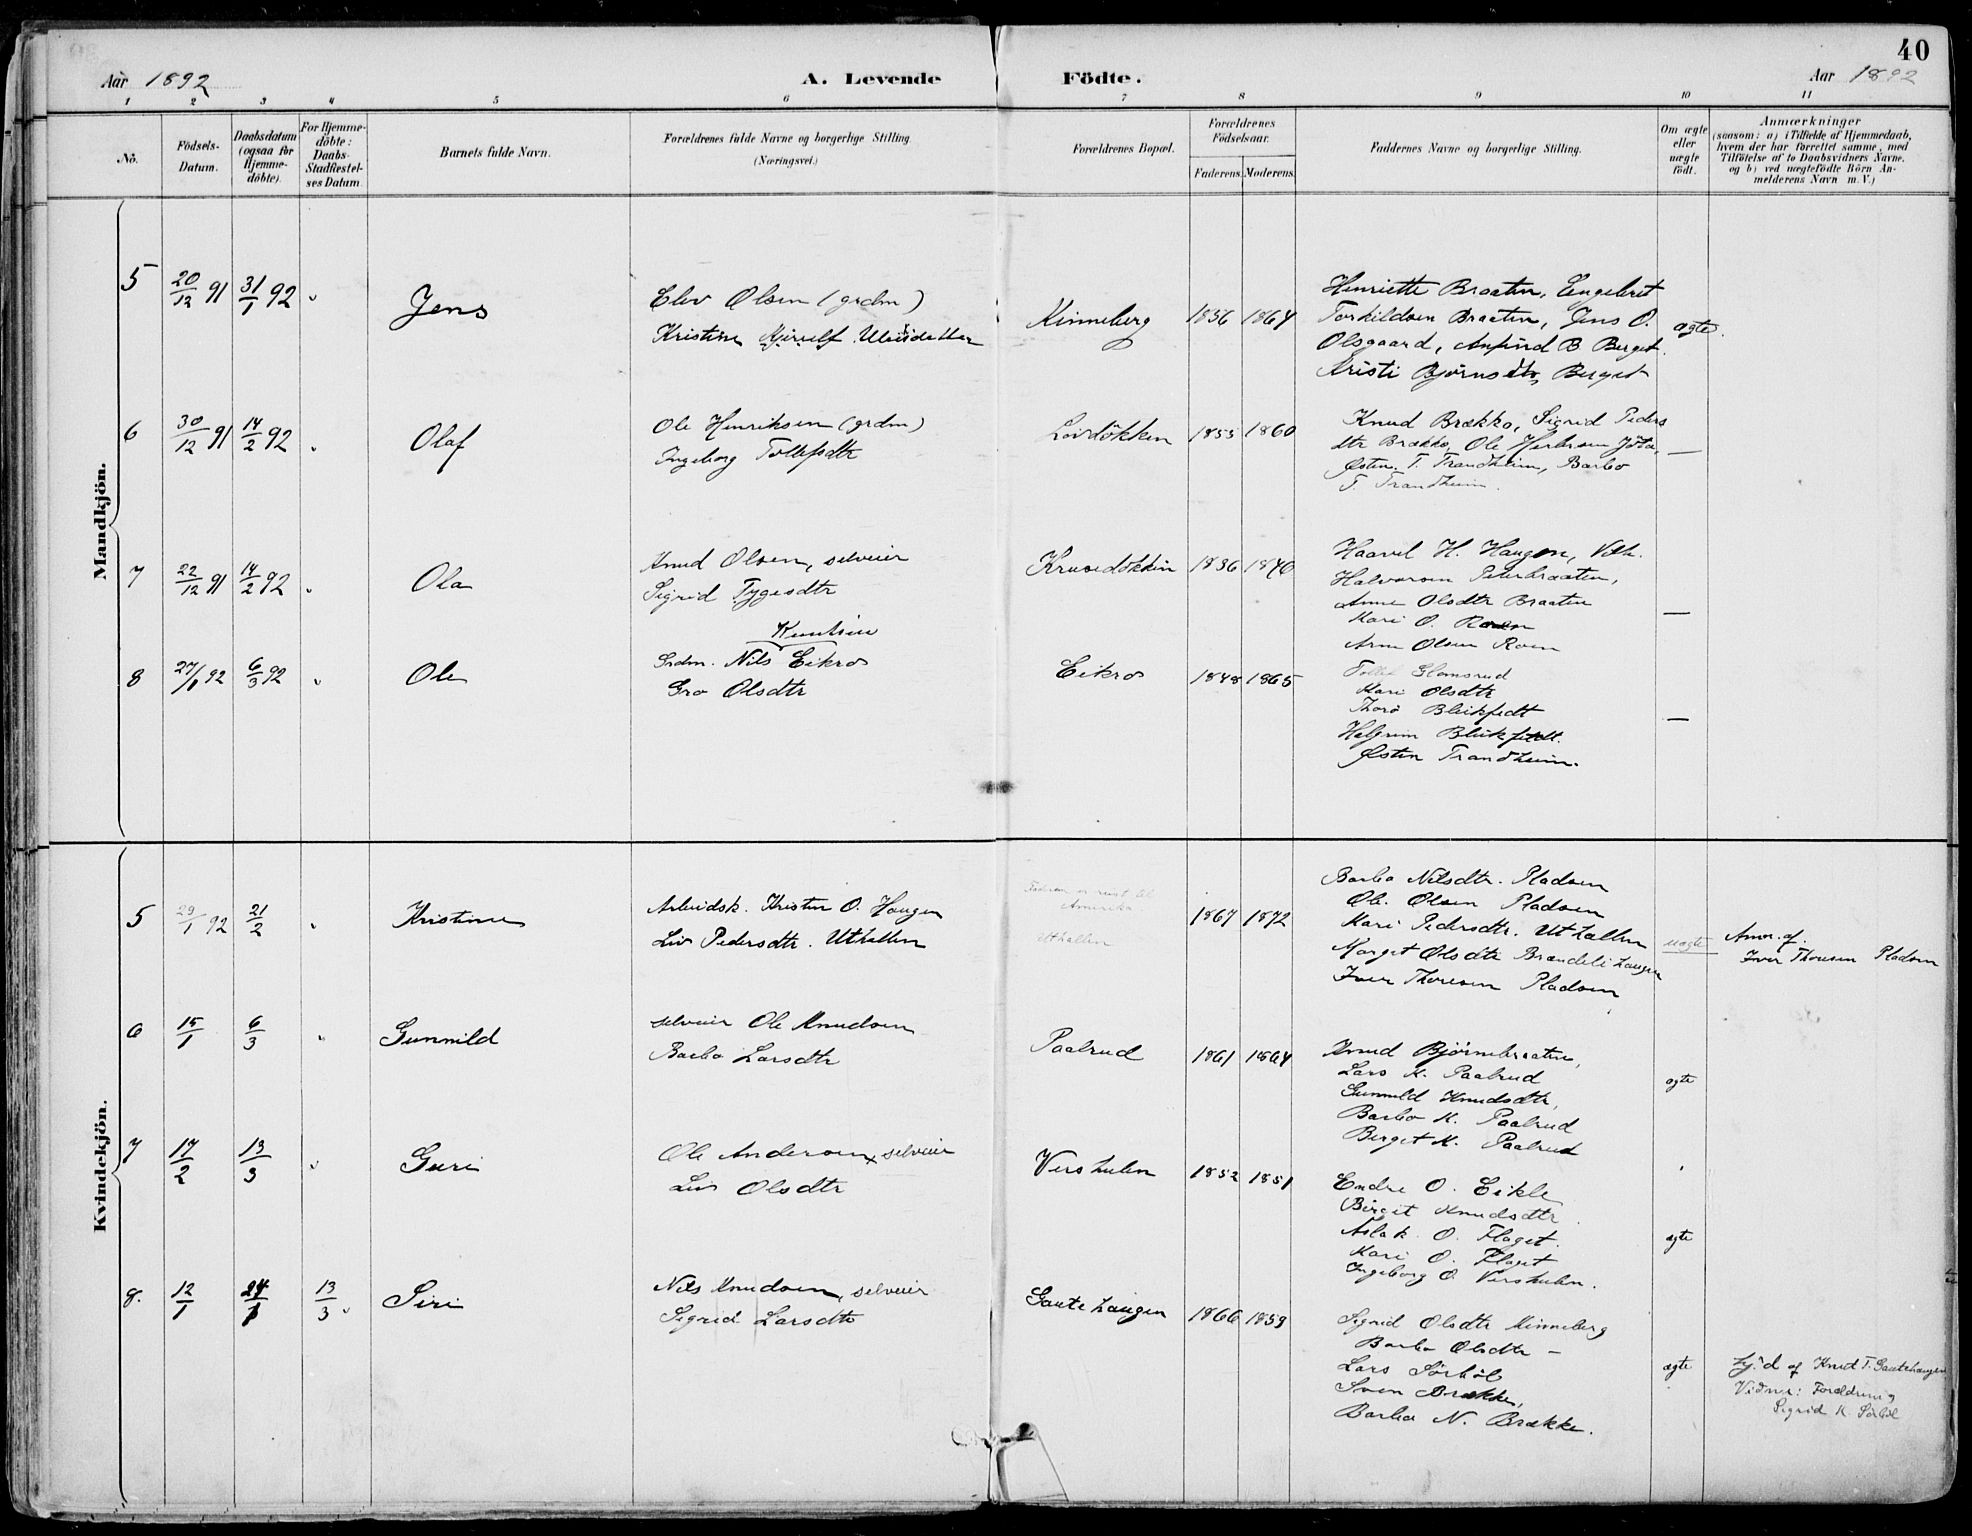 40
Aar 1892
A. Levende Födte.
Aar 1892
1 2 3 4 5 6 7 8 9 10 11
No.
Födsels-
Datum.
Daabsdatum
(ogsaa for
Hjemme-
döbte).
For Hjemme-
döbte:
Daabs-
Stadfæstel-
ses Datum.
Barnets fulde Navn.
Forældrenes fulde Navne og borgerlige Stilling.
(Næringsvei.)
Forældrenes Bopæl.
Forældrenes
Födselsaar.
Faderens. Moderens.
Faddernes Navne og borgerlige Stilling.
Om ægte
eller
uægte
födt.
Anmærkninger
(saasom: a) i Tilfælde af Hjemmedaab,
hvem der har forrettet samme, med
Tilföielse af to Daabsvidners Navne.
og b) ved uægtefödte Börn An-
melderens Navn m. V.)
Mandkjön.
5 20/12 91 31/1 92 Jens
Elev Olsen (grdm)
Kristine
Kinneberg 1856 1864
Henriette Braaten, Engebret
Torkildsen Braaten, Jens O.
Olsgaard, Anfind B Berget
Kristi Björnsdtr, Berget
ægte
6 30/12 91 14/2 92 Olaf
Ole Henriksen (grdm)
Ingeborg Tollefsdtr
1855 1860
Knud Brække, Sigrid Peders
dtr Brække, Ole
Østen T. Trandheim, Barbo
T. Trandheim.
—
7 22/12 91 14/2 92 Ola
Knud Olsen, selveier
Sigrid Tygesdtr
1836 1846
Haavel H. Haugen,
Halvorsen Peterbraaten,
Anne Olsdtr Braaten
Kari O. Roen
Arne Olsen Roen
—
8 27/1 92 6/3 92 Ole
Knutsen
Grdm. Nils Eikro
Gro Olsdtr
Eikro 1848 1865
Tollef Glamsrud
Kari Olsdtr
Thorö
Halgrim
Østen Trandheim.
—
Kvindekjön.
5 29/1 92 21/2 Kristine
Arbeidsk. Kristen O. Haugen
Liv Pedersdtr. Uthallen
Faderen er reist til
Amerika
Uthallen
1867 1872
Barbo Nilsdtr. Pladsen
Ole Olsen Pladsen
Kari Pedersdtr. Uthallen
Marget Olsdtr Brendelihaugen
Iver Thoresen Pladsen
uægte
Anm. af.
Iver Thoresen Pladsen
6 15/1 6/3 Gunnild
selveier Ole Knudsen
Barbo Larsdtr
Paalrud 1861 1864
Knud Björnebraaten,
Lars K. Paalrud
Gunnild Knudsdtr,
Barbo K. Paalrud
Berget K. Paalrud
ægte
7 17/2 13/3 Guri
Ole Andersen, selveier
Liv Olsdtr
Vershulen 1852 1851
Endre O. Eikle
Birget Knudsdtr
Aslak O. Flaget.
Kari O. Flaget
Ingeborg O. Vershulen.
ægte
8. 12/1 24/1 13/3 Siri
Nils Knudsen, selveier
Sigrid Larsdtr
Gautehaugen 1866 1859
Sigrid Olsdtr Kinneberg
Barbo Olsdtr —
Lars Sörböl
Sven Brække,
Barbo N. Brække.
ægte
hj.d af Knut T. Gautehaugen
Vidner: Forældrene og
Sigrid K. Sörböl